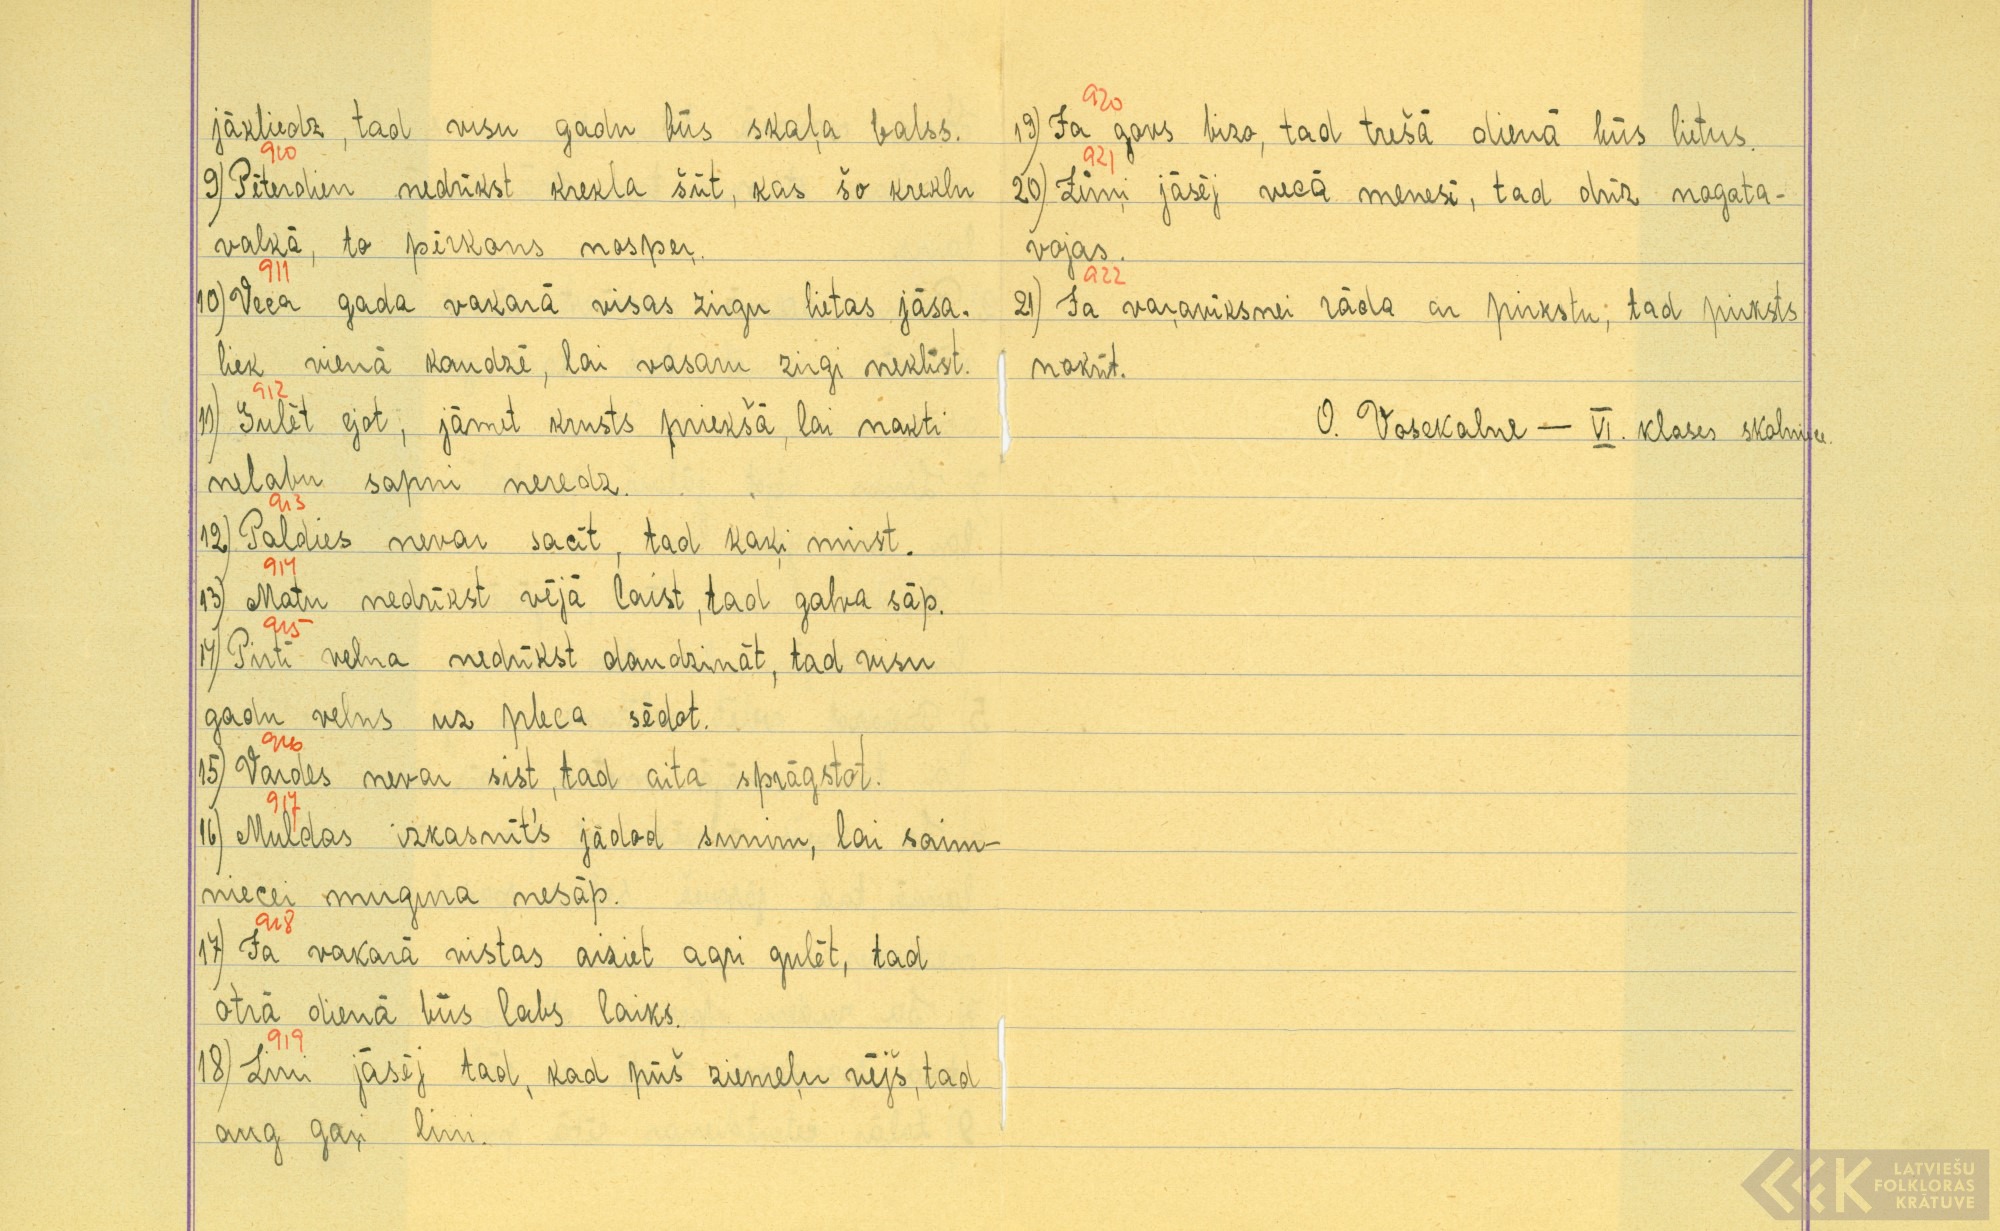 jākliedz, tad visu gadu būs skaļa balss.
910
9) Pēterdien nedrīkst krekla šūt, kas šo kreklu
valkā, to pērkons nosper.
911
10) Veca gada vakarā visas zirgu lietas jāsa-
liek vienā kaudzē, lai vasaru zirgi neklīst.
912
11) Gulēt ejot, jāmet krusts priekšā, lai nakti
nelabu sapni neredz.
913
12) Paldies nevar sacīt, tad kaķi mirst.
914
13) Matu nedrīkst vējā laist, tad galva sāp.
915
14) Pirtī velna nedrīkst daudzināt, tad visu
gadu velns uz pleca sēdot.
916
15) Vardes nevar sist, tad aita sprāgstot.
917
16) Muldas izkasnīt's jādod sunim, lai saim-
niecei mugura nesāp.
918
17) Ja vakarā vistas aiziet agri gulēt, tad
otrā dienā būs labs laiks.
919
18) Lini jāsēj tad, kad pūš ziemeļu vējš, tad
aug gaŗi lini.
920
19) Ja govs bizo, tad trešā dienā būs lietus.
921
20) Zirņi jāsēj vecā menesī, tad drīz nogata-
vojas.
922
21) Ja vaŗavīksnei rāda ar pirkstu, tad pirksts
nokūt.
O. Vosekalne — VI. klases skolniece.
LATVIEŠU
FOLKLORAS
KRĀTUVE